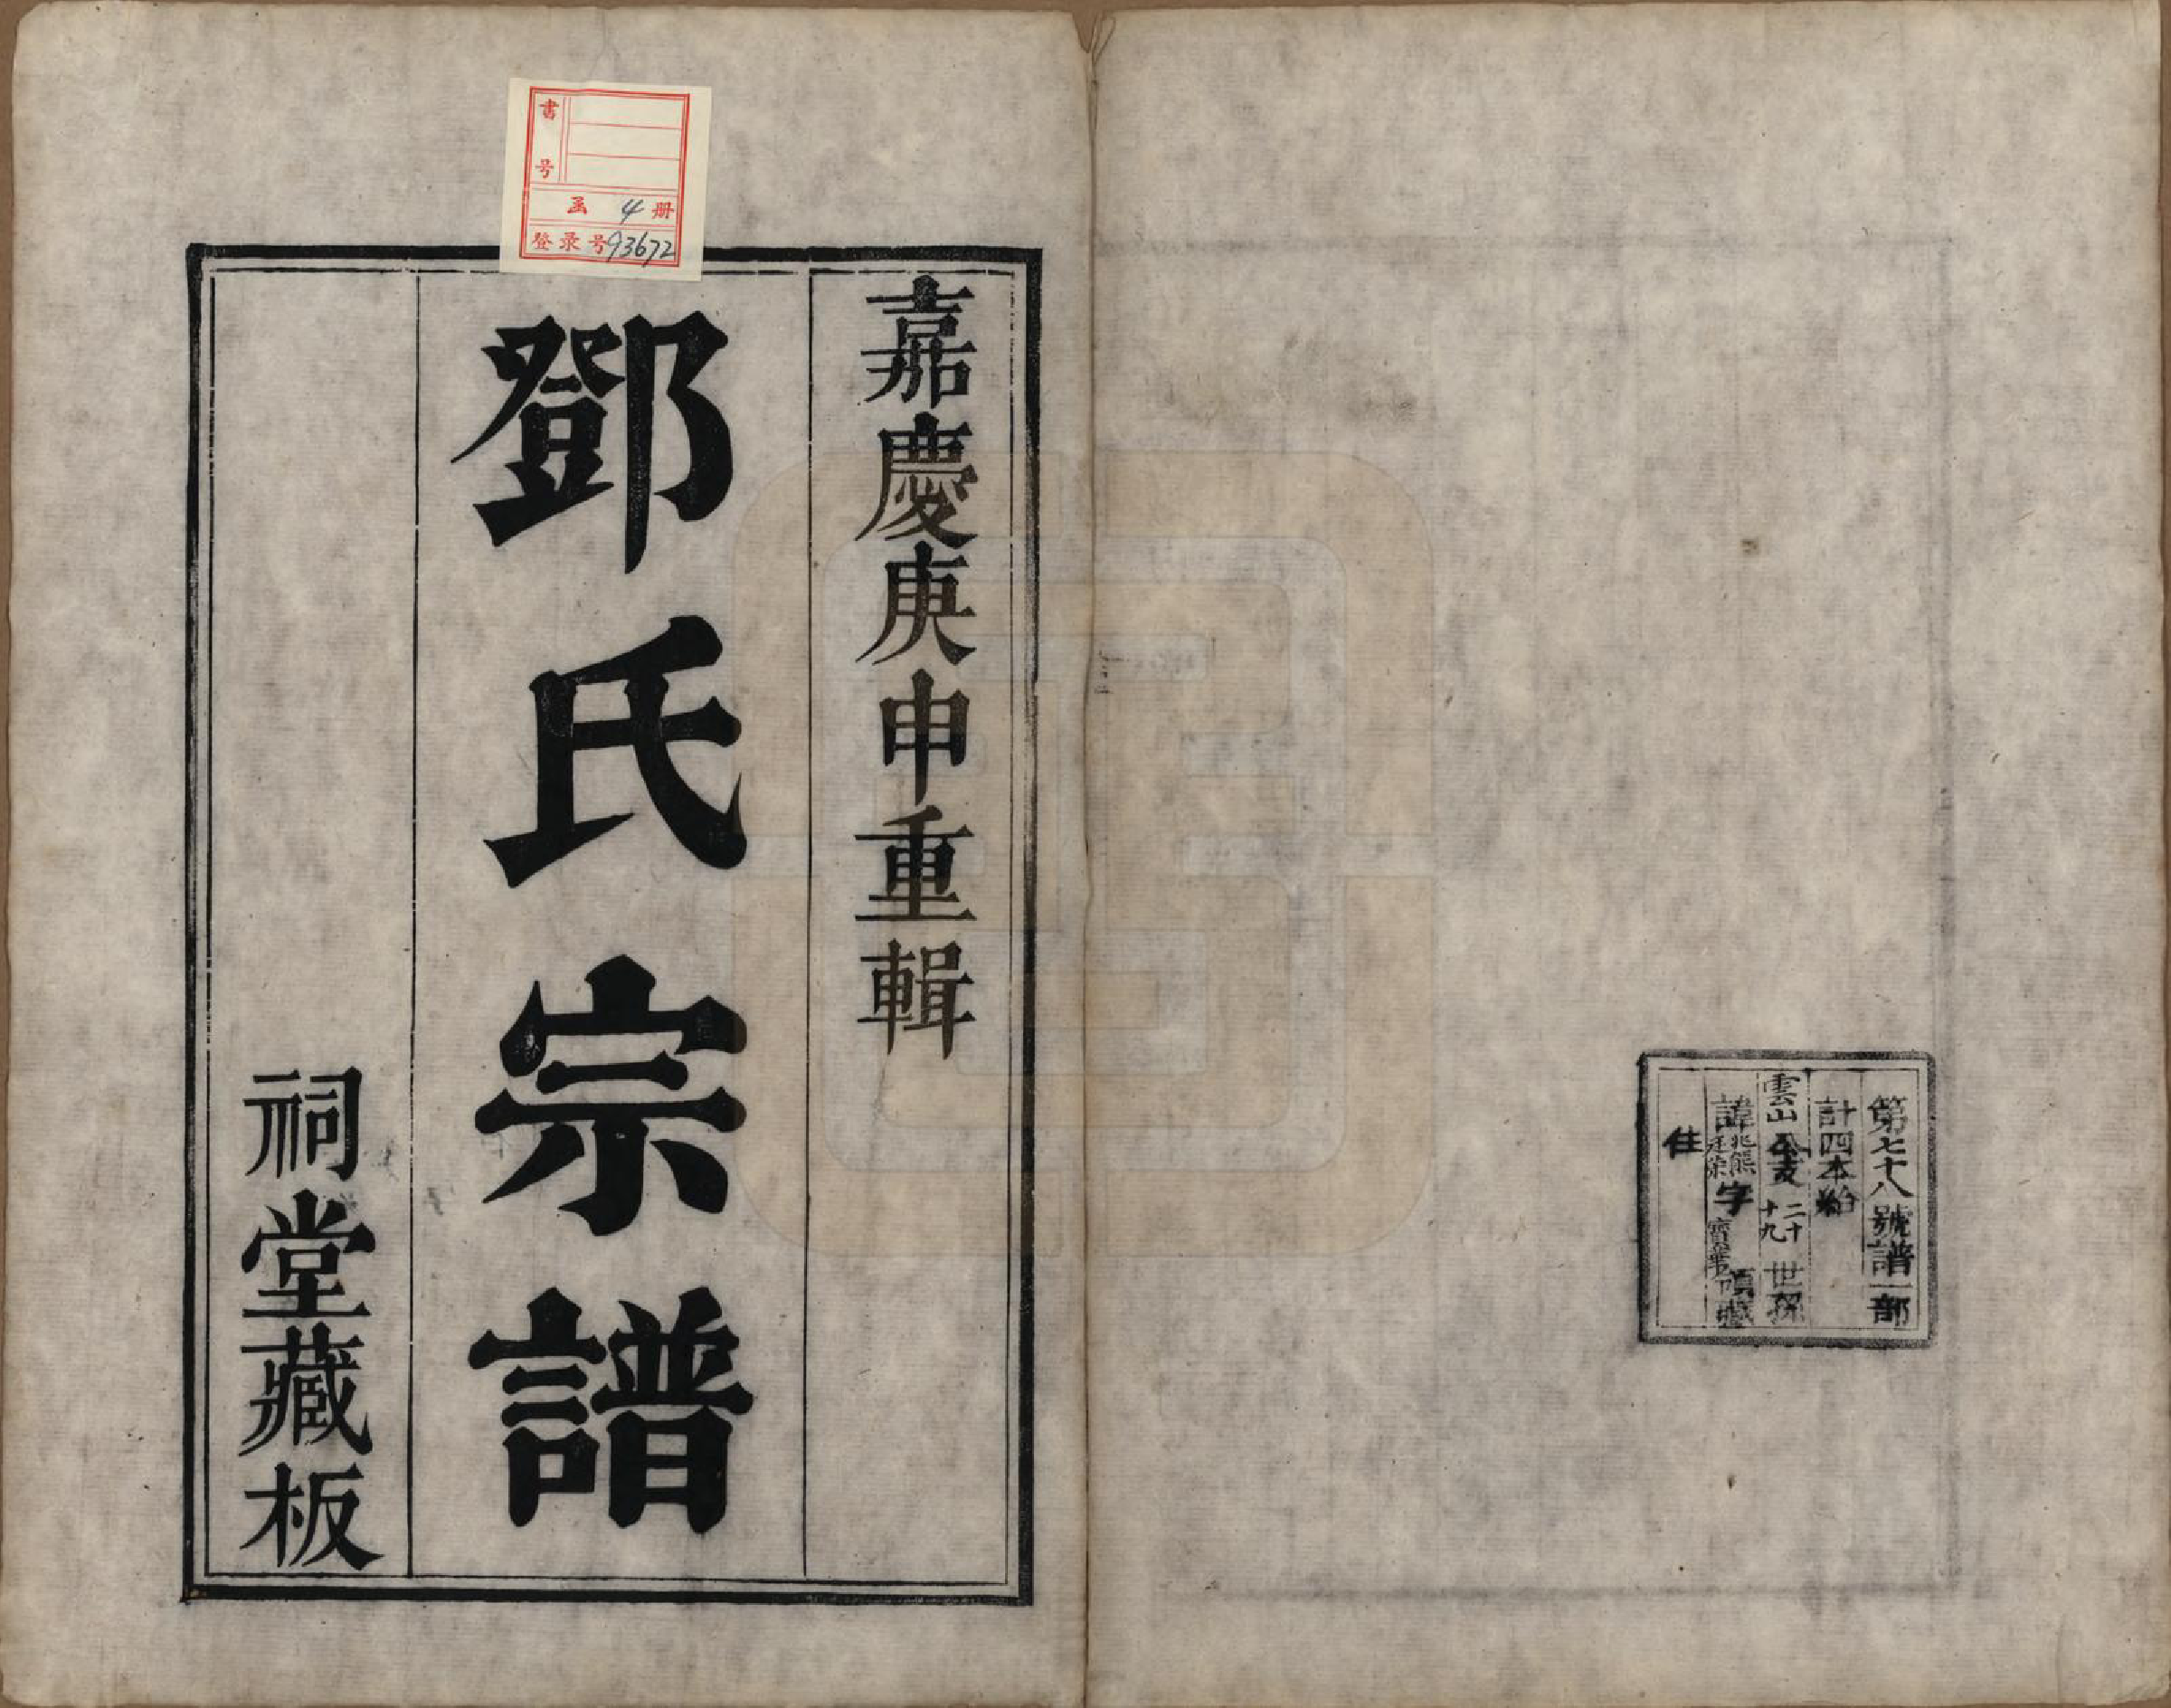 第七十八號譜一部
計四本給
雲山公支二十十九世孫
諱兆熊廷榮字領藏
住
嘉慶庚申重輯
鄧氏宗譜
祠堂藏板
書号
函 4 册
登录号93672